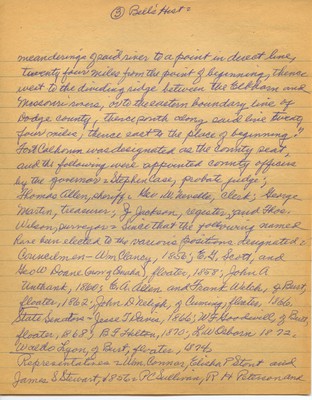 ③ Bell's Hist=
meanderings of said river to a point in direct line,
twenty four miles from the point of beginning, thence
west to the dividing ridge between the Elkhorn and
Missouri rivers, or to the eastern boundary line of
Dodge county, thence south along said line twenty
four miles; thence east to the place of beginning."
Fort Calhoun was designated as the county seat,
and the following were appointed county officers
by the governor = Stephen Case, probate judge;
Thomas Allen, sheriff = Geo. M. Neville, clerk; George
Martin, treasurer; J. Jackson, register, and Thos.
Wilson, surveyor = Since that the following named
have been elected to the various positions designated =
Councilmen = Wm Clancy, 1856; E. G. Scott, and
Geo W Doane (        ), floater, 1858; John A
Unthank, 1860; E. A. Allen and Frank Welch, of Burt,
floater, 1862; John D. Neligh, of Cuming, floater, 1866.
State Senators = Jesse T Davis, 1866; W F Goodwill, of Burt,
floater, 1868; B F Hilton, 1870; L W Osborn 1872,
Waldo Lyon, of Burt, floater, 1874
Representatives = Wm Connor, Elisha P Stout and
James S Stewart, 1856 = P C Sullivan, R H Peterson and